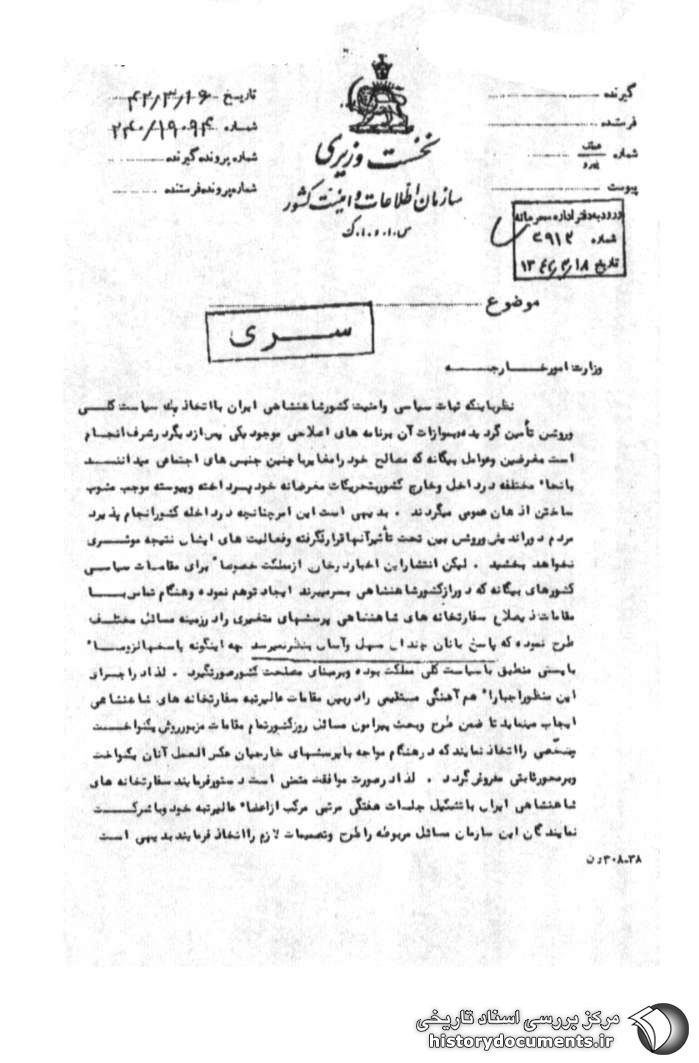 گیرنده
فرستنده
شماره عطف پیرو
پیوست
نخست وزیری
سازمان اطلاعات و امنیت کشور
س.ا.و.ا.ک
تاریخ ۴۲/۳/۱۶
شماره ۲۴۰/۱۹۰۹۴
شماره پرونده گیرنده
شماره پرونده فرستنده
ورود به دفتر اداره محرمانه
شماره ۲۹۱۲
تاریخ ۱۳۴۲/۳/۱۸
موضوع
سری
وزارت امور خارجه
نظر باینکه ثبات سیاسی وامنیت کشورشاهنشاهی ایران با اتخاذ یك سیاست کلی
وروشن تأمین گردیده وبموازات آن برنامه های اصلاحی موجود یکی پس از دیگر درشرف انجام
است مغرضین وعوامل بیگانه که مصالح خود رامغایر با چنین جنبش های اجتماعی میدانند
بانحاء مختلفه درداخل وخارج کشوربتحریکات مغرضانه خود پرداخته وپیوسته موجب مشوب
ساختن اذهان عمومی میگردند . بدیهی است این امرچنانچه درداخله کشورانجام پذیرد
مردم دوراندیش وروشن بین تحت تأثیرآنها قرارنگرفته وفعالیت های ایشان نتیجه موثری
نخواهد بخشید . لیکن انتشاراین اخبار درخارج ازمملکت خصوصاً برای مقامات سیاسی
کشورهای بیگانه که دور ازکشورشاهنشاهی بسرمیبرند ایجاد توهم نموده وهنگام تماس با
مقامات ذیصلاح سفارتخانه های شاهنشاهی پرسشهای متغیری رادرزمینه مسائل مختلف
طرح نموده که پاسخ بانان چندان سهل وآسان بنظرنمیرسد چه اینگونه پاسخها لزوماً
بایستی منطبق با سیاست کلی مملکت بوده وبرمبنای مصلحت کشورصورتگیرد . لذا دراجرای
این منظوراجباراً هم آهنگی مستقیمی رادربین مقامات عالیرتبه سفارتخانه های شاهنشاهی
ایجاب مینماید تا ضمن طرح وبحث پیرامون مسائل روزکشورتمام مقامات مزبورروش یکنواخت
مشخصی رااتخاذ نمایند که درهنگام مواجه با پرسشهای خارجیان عکس العمل آنان یکنواخت
وبرمحورثابتی مفروش گردد . لذا درصورت موافقت متمنی است دستورفرمایند سفارتخانه های
شاهنشاهی ایران با تشکیل جلسات هفتگی مرتبی مرکب ازاعضاء عالیرتبه خود وباشرکت
نمایندگان این سازمان مسائل مربوطه راطرح وتصمیمات لازم رااتخاذ فرمایند بدیهی است
۳۸-۳۰۸
مرکز بررسی اسناد تاریخی
historydocuments.ir